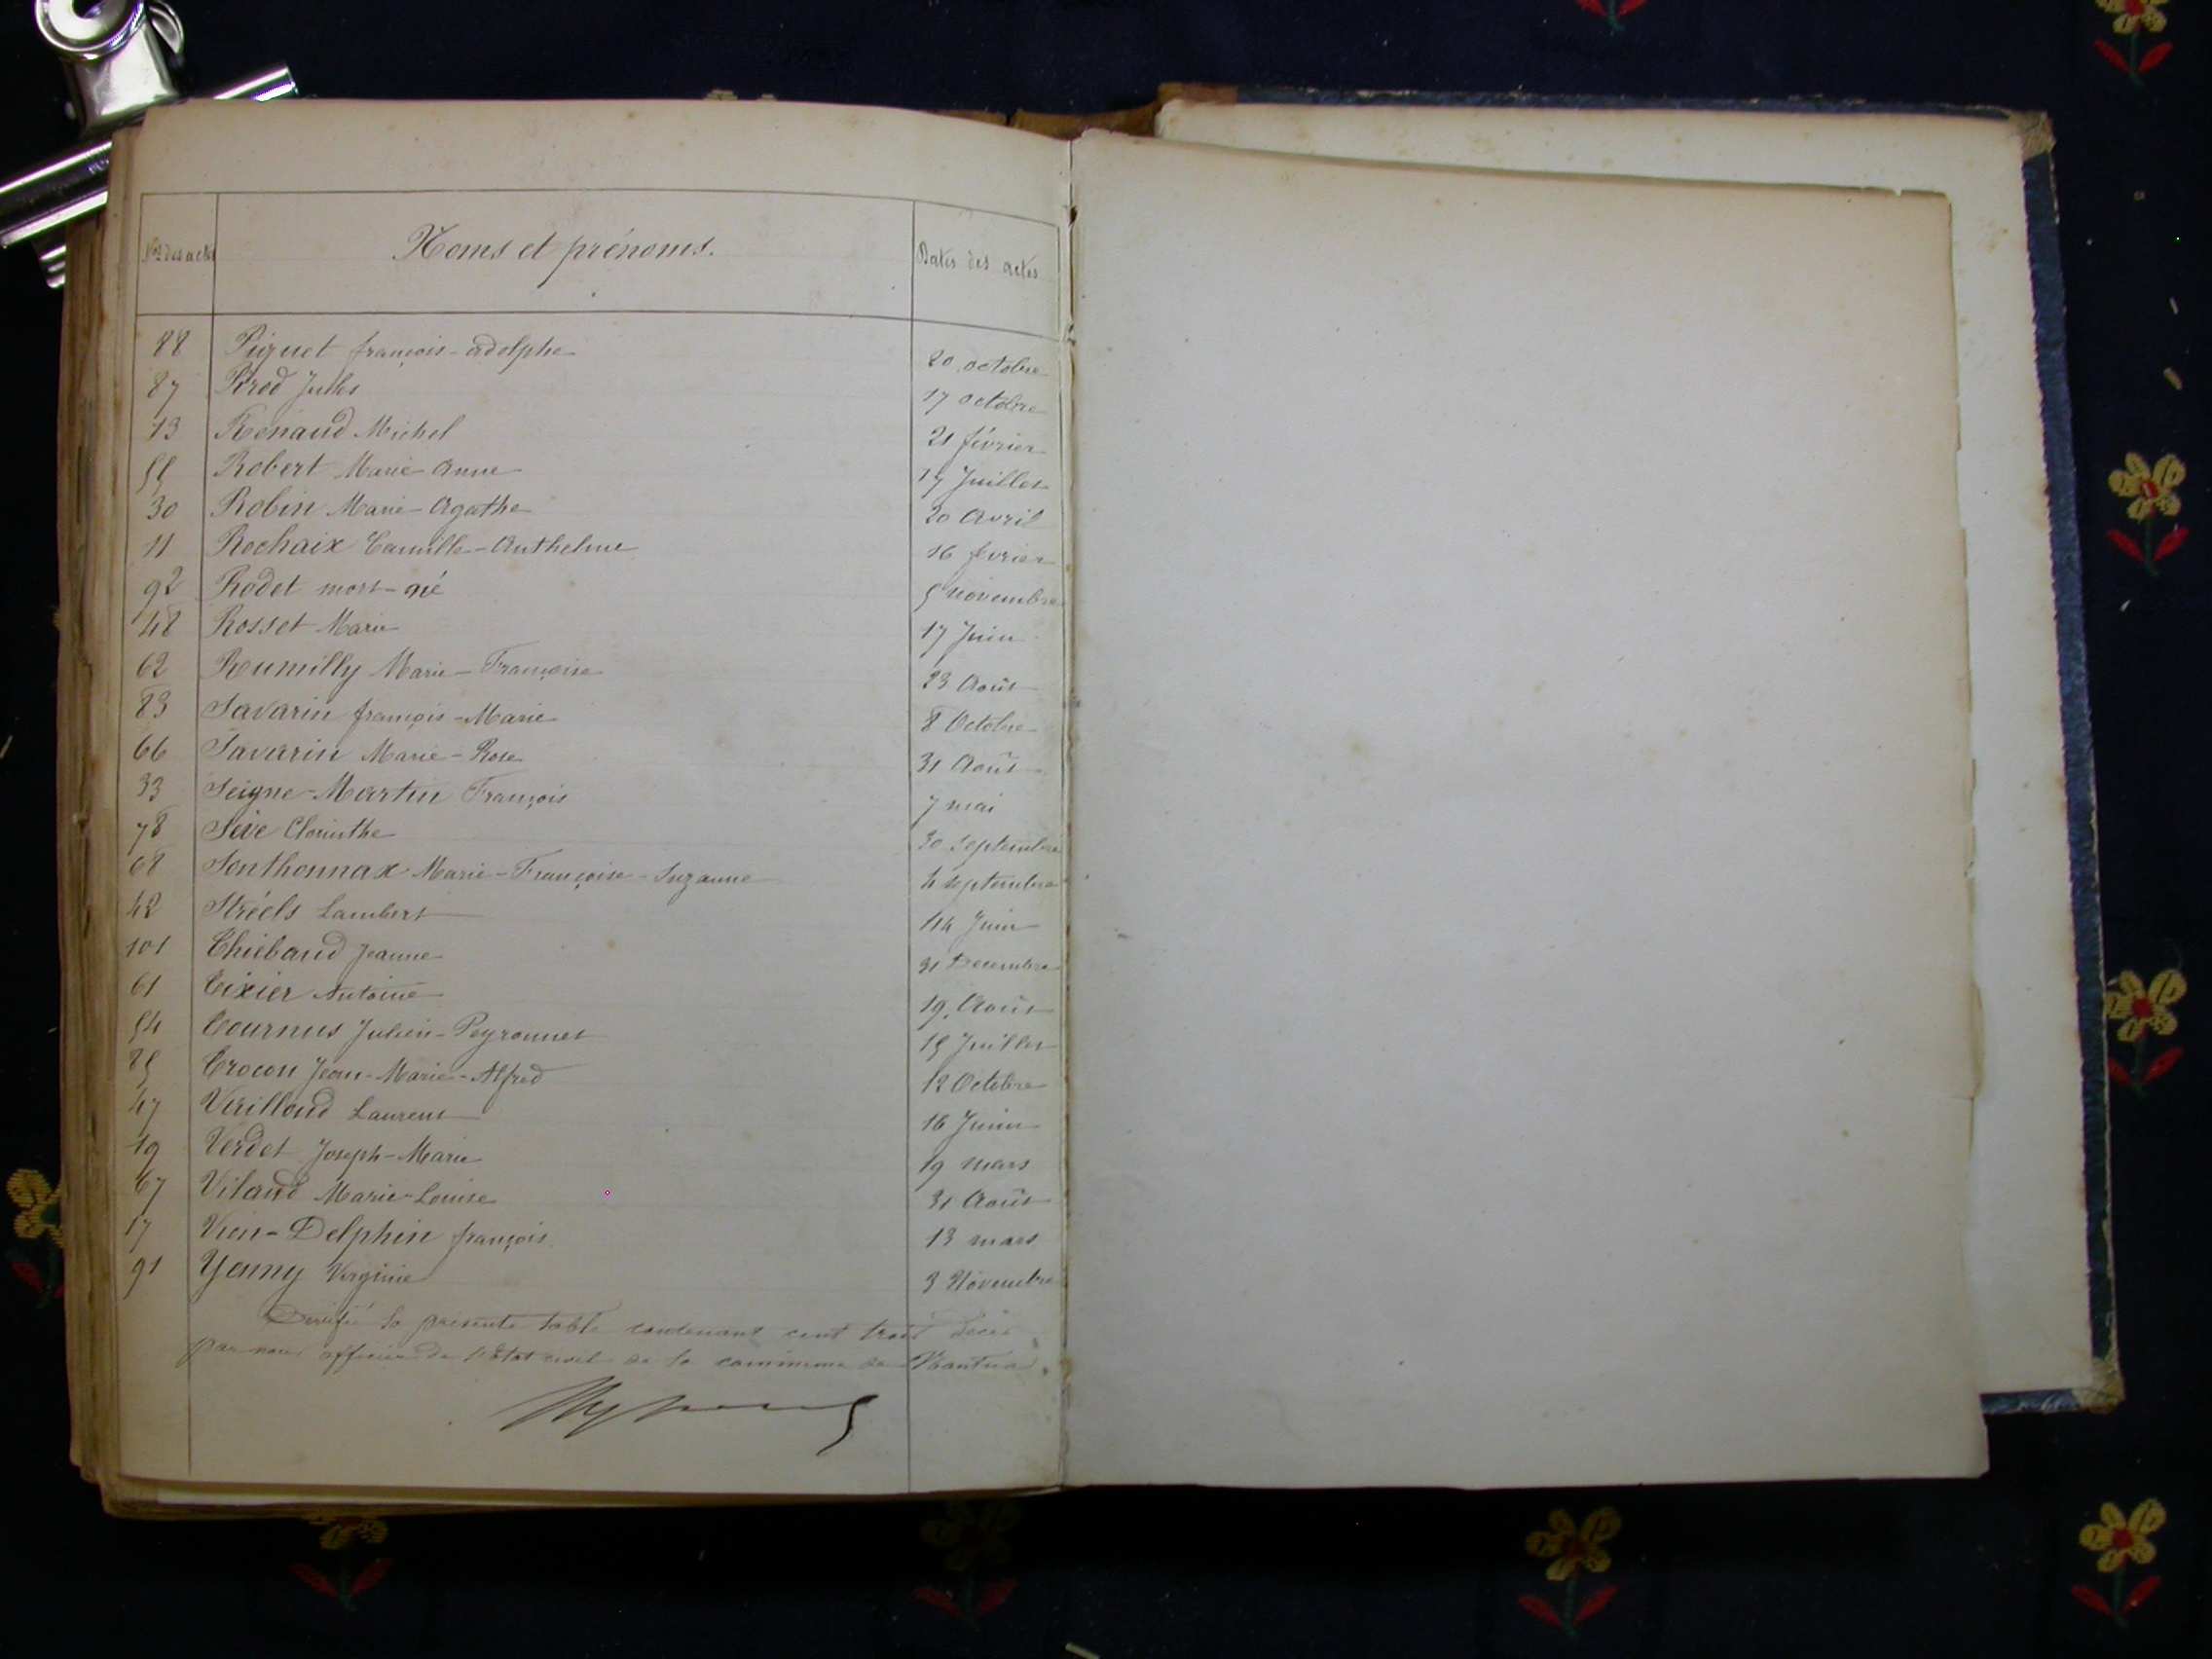 Nos des actes Noms et prénoms. Dates des actes
88 Piquet françois-adolphe 20 octobre
87 Pirod Jules 17 octobre
13 Renaud Michel 21 février
55 Robert Marie-Anne 17 Juillet
30 Robin Marie-Agathe 20 Avril
11 Rochaix Camille-Anthelme 16 fevrier
92 Rodet mort-né 5 novembre
48 Rosset Marie 17 Juin
62 Rumilly Marie-Françoise 23 Août
83 Savarin françois-Marie 8 Octobre
66 Savarin Marie-Rose 31 Août
33 Seigne-Martin François 7 mai
78 Sève Clorinthe 30 septembre
68 Sonthonnax Marie-Françoise-Suzanne 4 septembre
42 Stréels Lambert 14 Juin
101 Thiébaud Jeanne 31 Decembre
61 Tixier Antoine 19 Août
54 Tournus Julien-Peyronnet 15 Juillet
85 Trocon Jean-Marie-Alfred 12 Octobre
47 Vuilloud Laurent 16 Juin
19 Verdet Joseph-Marie 19 mars
67 Vilaud Marie-Louise 31 Août
17 Vion-Delphin françois 13 mars
91 Yenny Virginie 3 Novembre
la presente table contenant cent trois décès
par nous officier de l'état civil de la commune de Nantua.